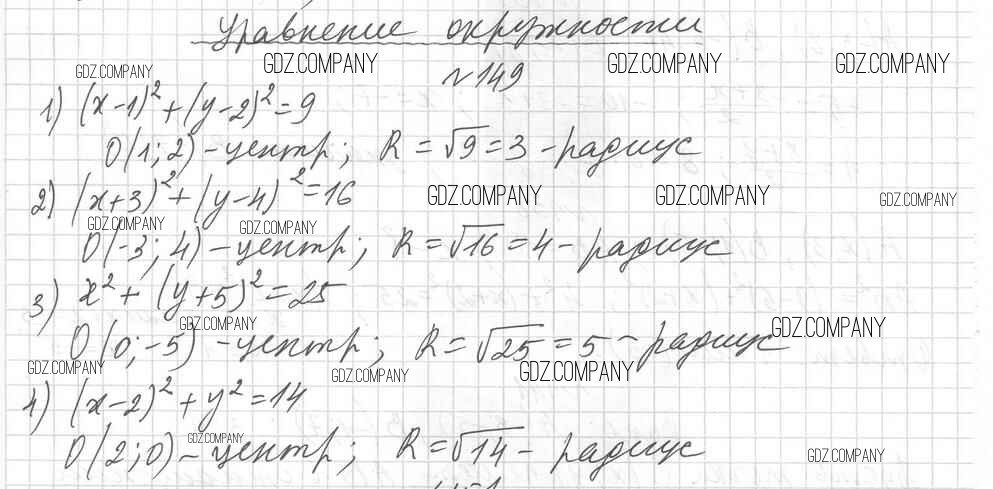 Уравнение окружности
GDZ.COMPANY GDZ.COMPANY GDZ.COMPANY GDZ.COMPANY
№149
1) (x-1)²+(y-2)²=9
O(1;2)-центр; R=√9=3-радиус
2) (x+3)²+(y-4)²=16
GDZ.COMPANY GDZ.COMPANY GDZ.COMPANY
GDZ.COMPANY GDZ.COMPANY
O(-3;4)-центр; R=√16=4-радиус
3) x²+(y+5)²=25
GDZ.COMPANY GDZ.COMPANY
O(0;-5)-центр; R=√25=5-радиус
GDZ.COMPANY GDZ.COMPANY GDZ.COMPANY
4) (x-2)²+y²=14
GDZ.COMPANY
O(2;0)-центр; R=√14-радиус
GDZ.COMPANY